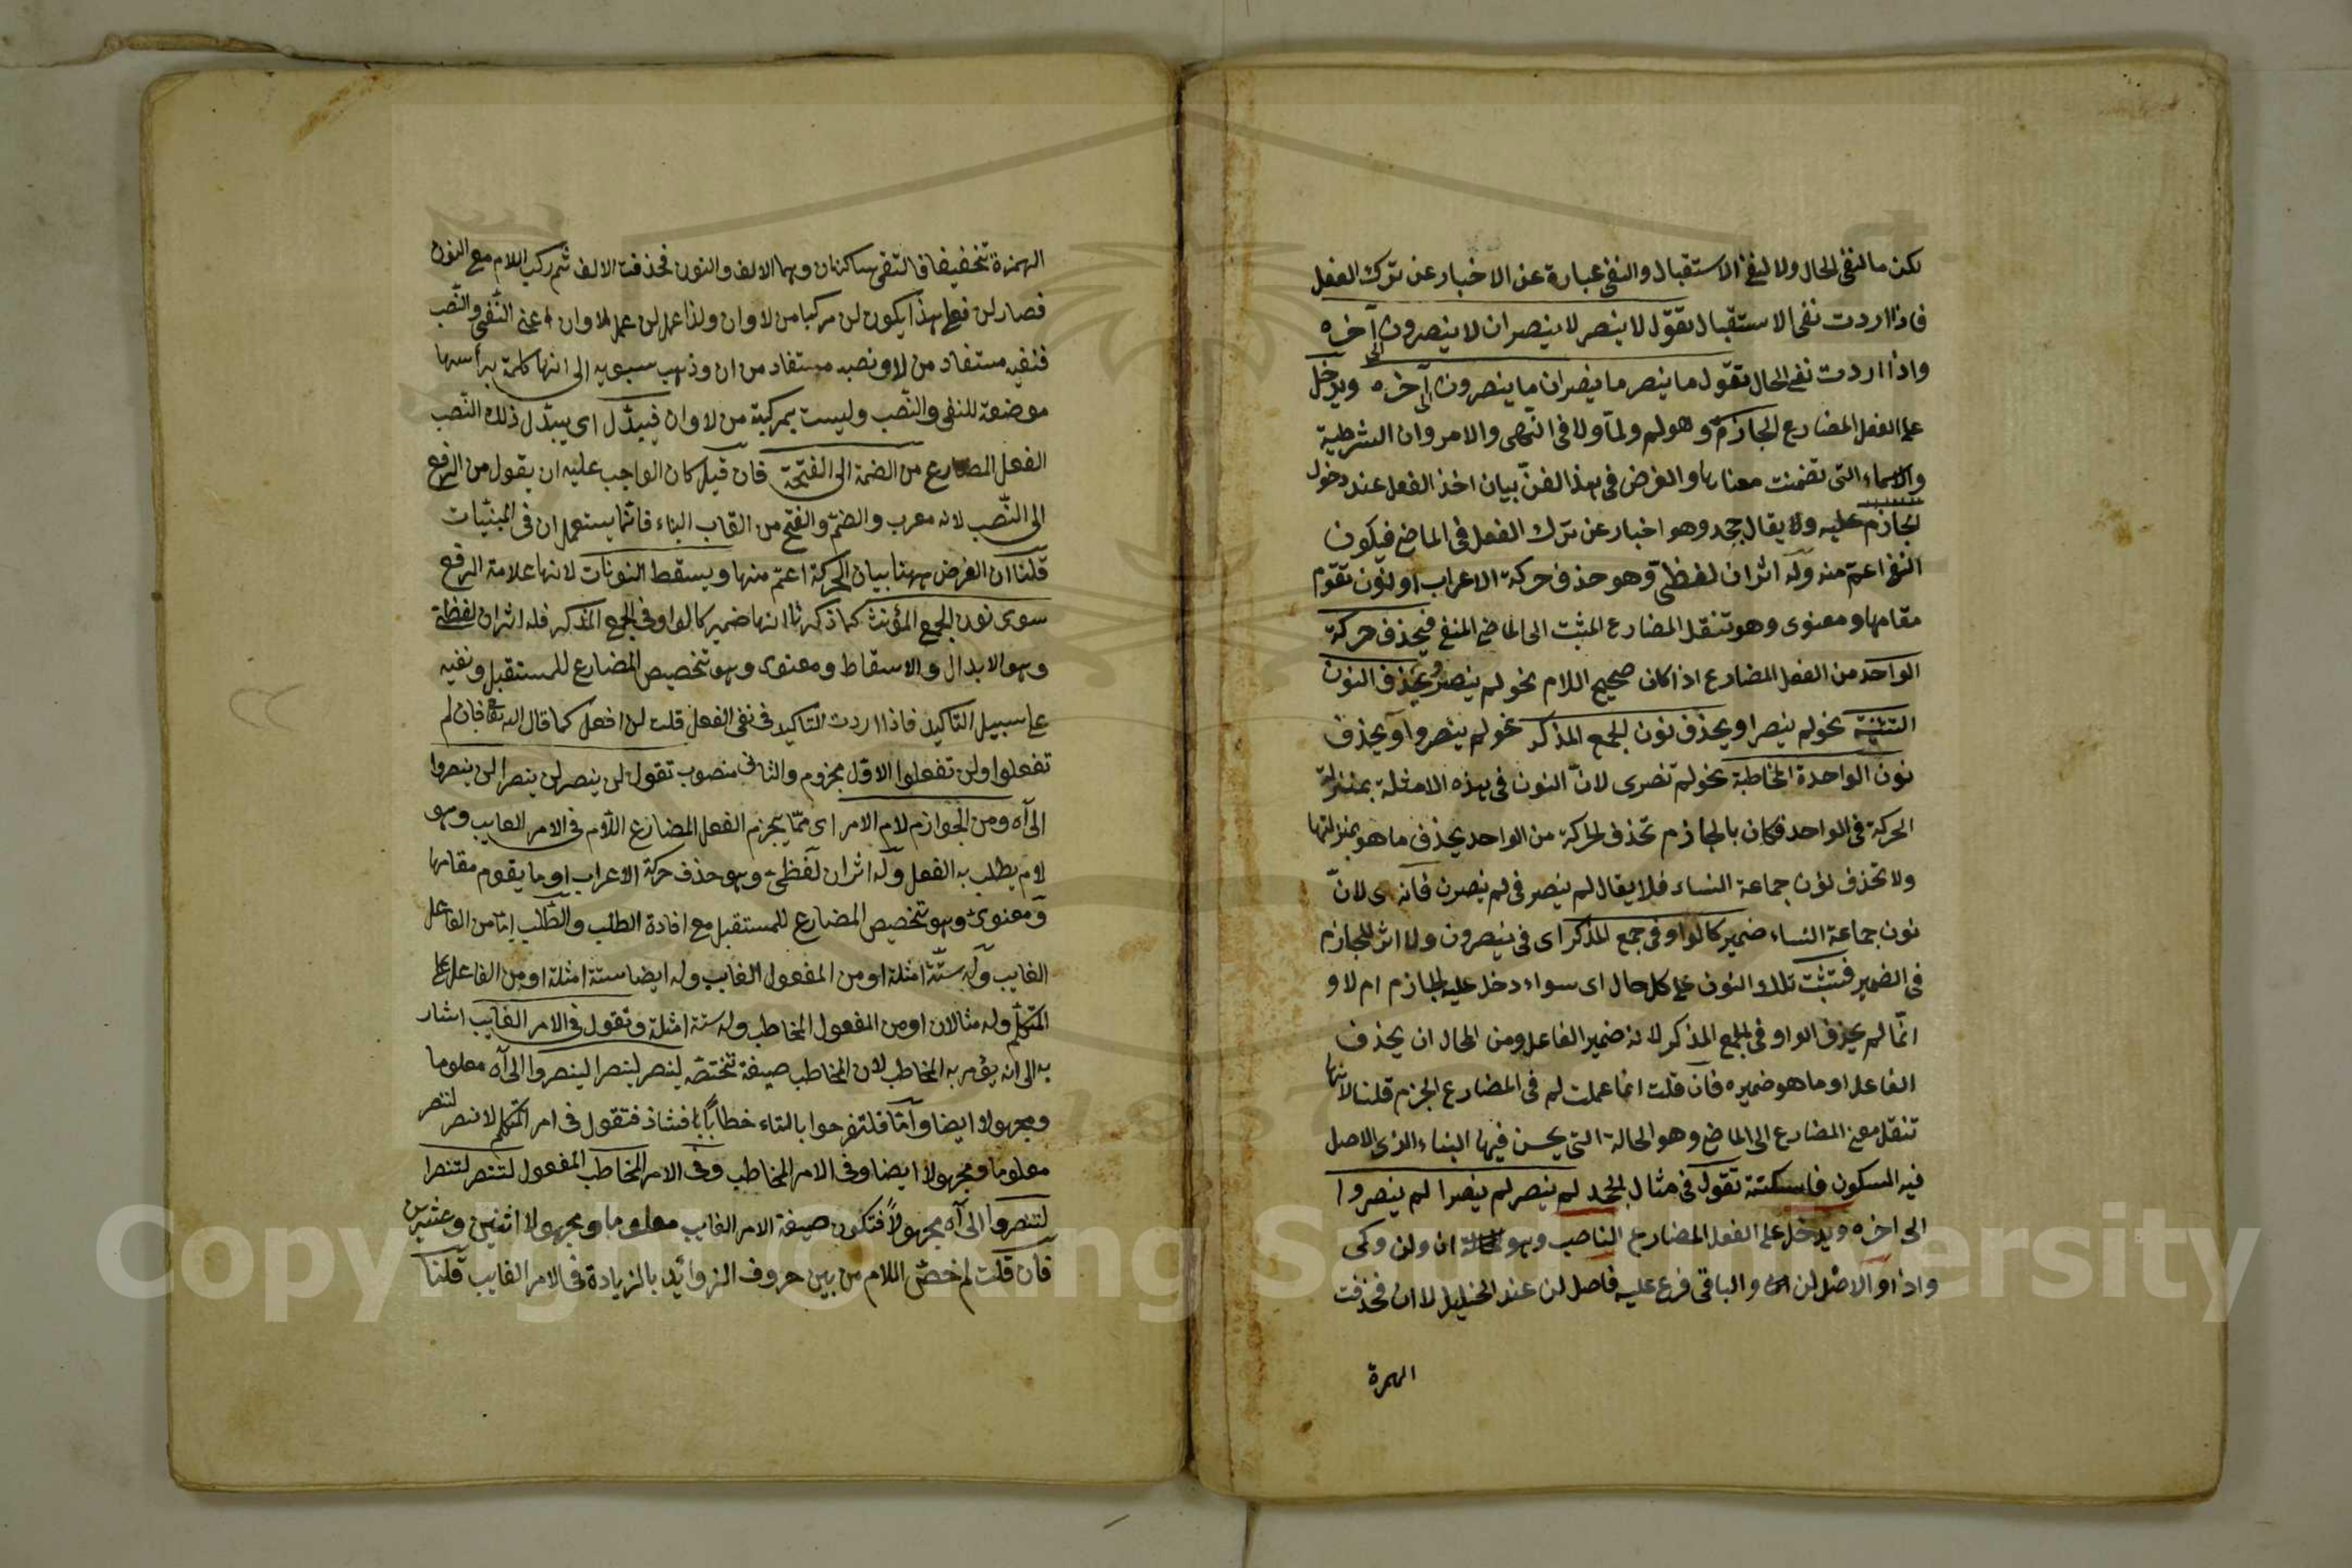 لكن ما لنفى الحال ولا لنفى الاستقبال والنفى عبارة عن الاخبار عن ترك الفعل
فاذا اردت نفى الاستقبال تقول لا ينصر لا ينصران لا ينصرون الى آخره
واذا اردت نفى الحال تقول ما ينصر ما ينصران ما ينصرون الى آخره ويدخل
على الفعل المضارع الجازم وهو لم ولما ولا فى النهى والامر وان الشرطية
والاسماء التى تضمنت معناها والغرض فى هذا الفنّ بيان اخذ الفعل عند دخول
الجازم عليه ولا يقال جحد وهو اخبار عن ترك الفعل فى الماضى فيكون
النفى اعمّ منه وله اثران لفظىّ وهو حذف حركة الاعراب او نون تقوم
مقامها ومعنوى وهو تنقل المضارع المثبت الى الماضى المنفى فيحذف حركة
الواحد من الفعل المضارع اذا كان صحيح اللام نحو لم ينصر ويحذف النون
التثنية نحو لم ينصرا ويحذف نون الجمع المذكر نحو لم ينصروا ويحذف
نون الواحدة المخاطبة نحو لم تنصرى لانّ النون فى هذه الامثلة بمنزلة
الحركة فى الواحد فكان بالجازم تحذف الحركة من الواحد يحذف ما هو بمنزلتها
ولا تحذف نون جماعة النساء فلا يقال لم ينصر فى لم ينصرن فانه لانّ
نون جماعة النساء ضمير كالواو فى جمع المذكر اى فى ينصرون ولا اثر للجازم
فى الضمير فتثبت تلك النون على كل حال اى سواء دخل عليه الجازم ام لا و
انّما لم يحذف الواو فى الجمع المذكر لانه ضمير الفاعل ومن الحال ان يحذف
الفاعل او ما هو ضميره فان قلت انما عملت لم فى المضارع الجزم قلنا لانها
تنقل معنى المضارع الى الماضى وهو الحالة التى يحسن فيها البناء الذى الاصل
فيه السكون فاسكنته تقول فى مثال الجحد لم ينصر لم ينصرا لم ينصروا
الى اخره ويدخل على الفعل المضارع الناصب وهو ان ولن وكى
واذا و الاصل لن ان والباقى فرع عليه فاصل لن عند الخليل لا ان فحذفت
الهمزة
الهمزة تخفيفا فالتقى ساكنان وهما الالف والنون فحذفت الالف ثم ركب اللام مع النون
فصار لن فعلى هذا يكون لن مركبا من لا وان ولذا عمل لن عمل لا وان اعنى النّفى والنّصب
فنفيه مستفاد من لا ونصبه مستفاد من ان وذهب سيبويه الى انها كلمة برأسها
موضعة للنفى والنّصب وليست بمركبة من لا وان فيبدّل اى يبدّل ذلك النّصب
الفعل المضارع من الضمة الى الفتحة فان قيل كان الواجب عليه ان يقول من الرفع
الى النّصب لانه معرب والضمّ والفتح من القاب البناء فانّما يستعملان فى المبنيّات
قلنا ان الغرض ههنا بيان الحركة اعمّ منها ويسقط النونات لانها علامة الرفع
سوى نون الجمع المؤنث كما ذكرنا انها ضمير كالواو فى الجمع المذكر فله اثران لفظىّ
وهو الابدال والاسقاط ومعنوى وهو تخصيص المضارع للمستقبل ونفيه
على سبيل التّاكيد فاذا اردت التاكيد فى نفى الفعل قلت لن افعل كما قال الله تعالى فان لم
تفعلوا ولن تفعلوا الاوّل مجزوم والثانى منصوب تقول لن ينصر لن ينصرا لن ينصروا
الى آه ومن الجوازم لام الامر اى ممّا يجزم الفعل المضارع اللّام فى الامر الغايب وهو
لام يطلب به الفعل وله اثران لفظىّ وهو حذف حركة الاعراب او ما يقوم مقامها
ومعنوىّ وهو تخصيص المضارع للمستقبل مع افادة الطلب والطّلب امّا من الفاعل
الغايب وله ستّة امثلة او من المفعول الغايب وله ايضا ستة امثلة او من الفاعل
المتكلّم وله مثالان او من المفعول المخاطب وله ستة امثلة وتقول فى الامر الغايب اشار
به الى انه يؤمر به المخاطب لان المخاطب صيغة تختصّه لينصر لينصرا لينصروا الى آه معلوما
ومجهولا ايضا وامّا فلتفرحوا بالتاء خطابًا فشاذ فتقول فى امر المتكلم لانصر لننصر
معلوما ومجهولا ايضا وفى الامر المخاطب وفى الامر المخاطب المفعول لتنصر لتنصرا
لتنصروا الى آه مجهولاً فتكون صيغة الامر الغايب معلوما ومجهولا اثنين وعشرين
فان قلت لم خصّ اللام من بين حروف الزوائد بالزيادة فى الامر الغايب قلنا
Copyright © King Saud University